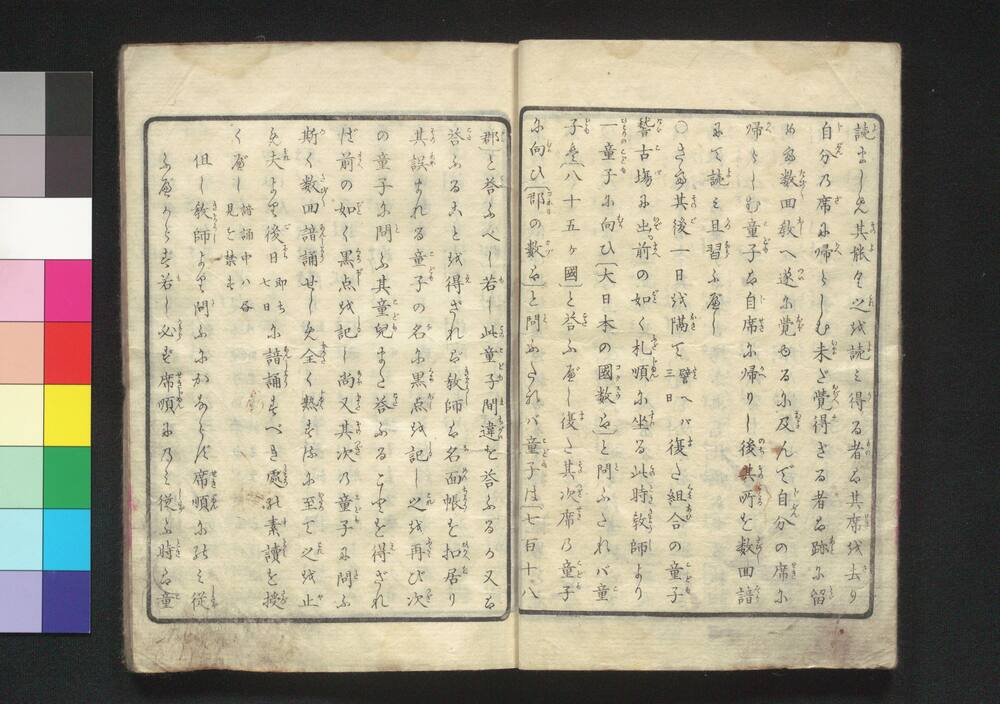 読ましめ其能く之を読み得る者は其席を去り
自分の席に帰らしむ未だ覚得ざる者は跡に留
め為数回教へ遂に覚ゆるに及んで自分の席に
帰らしむ童子は自席に帰りし後其所を数回諳
にて読み且習ふべし
○さて其後一日を隔て譬へバ三日復た組合の童子
稽古場に出前の如く札順に坐る此時教師より
一童子に向ひ「大日本の國数は」と問ふされバ童
子は「八十五ヶ國」と答ふべし復た其次席の童子
に向ひ「郡の数は」と問ふされバ童子は「七百十八
郡」と答ふべし若し此童子間違を答ふるか又は
答ふること を得ざれば教師は名面帳を扣居り
其誤まれる童子の名に黒点を記し之を再び次
の童子に問ふ其童兒また答ふることを得ざれ
ば前の如く黒点を記し尚又其次の童子に問ふ
斯く数回諳誦せしめ全く熟するに至て之を止
め夫より後日即ち七日に諳誦すべき處の素讀を授
くべし諳誦中ハ各見を禁ず
但し教師より問ふにかならず席順にのみ従
ふべからず若し必ず席順にのみ従ふ時は童